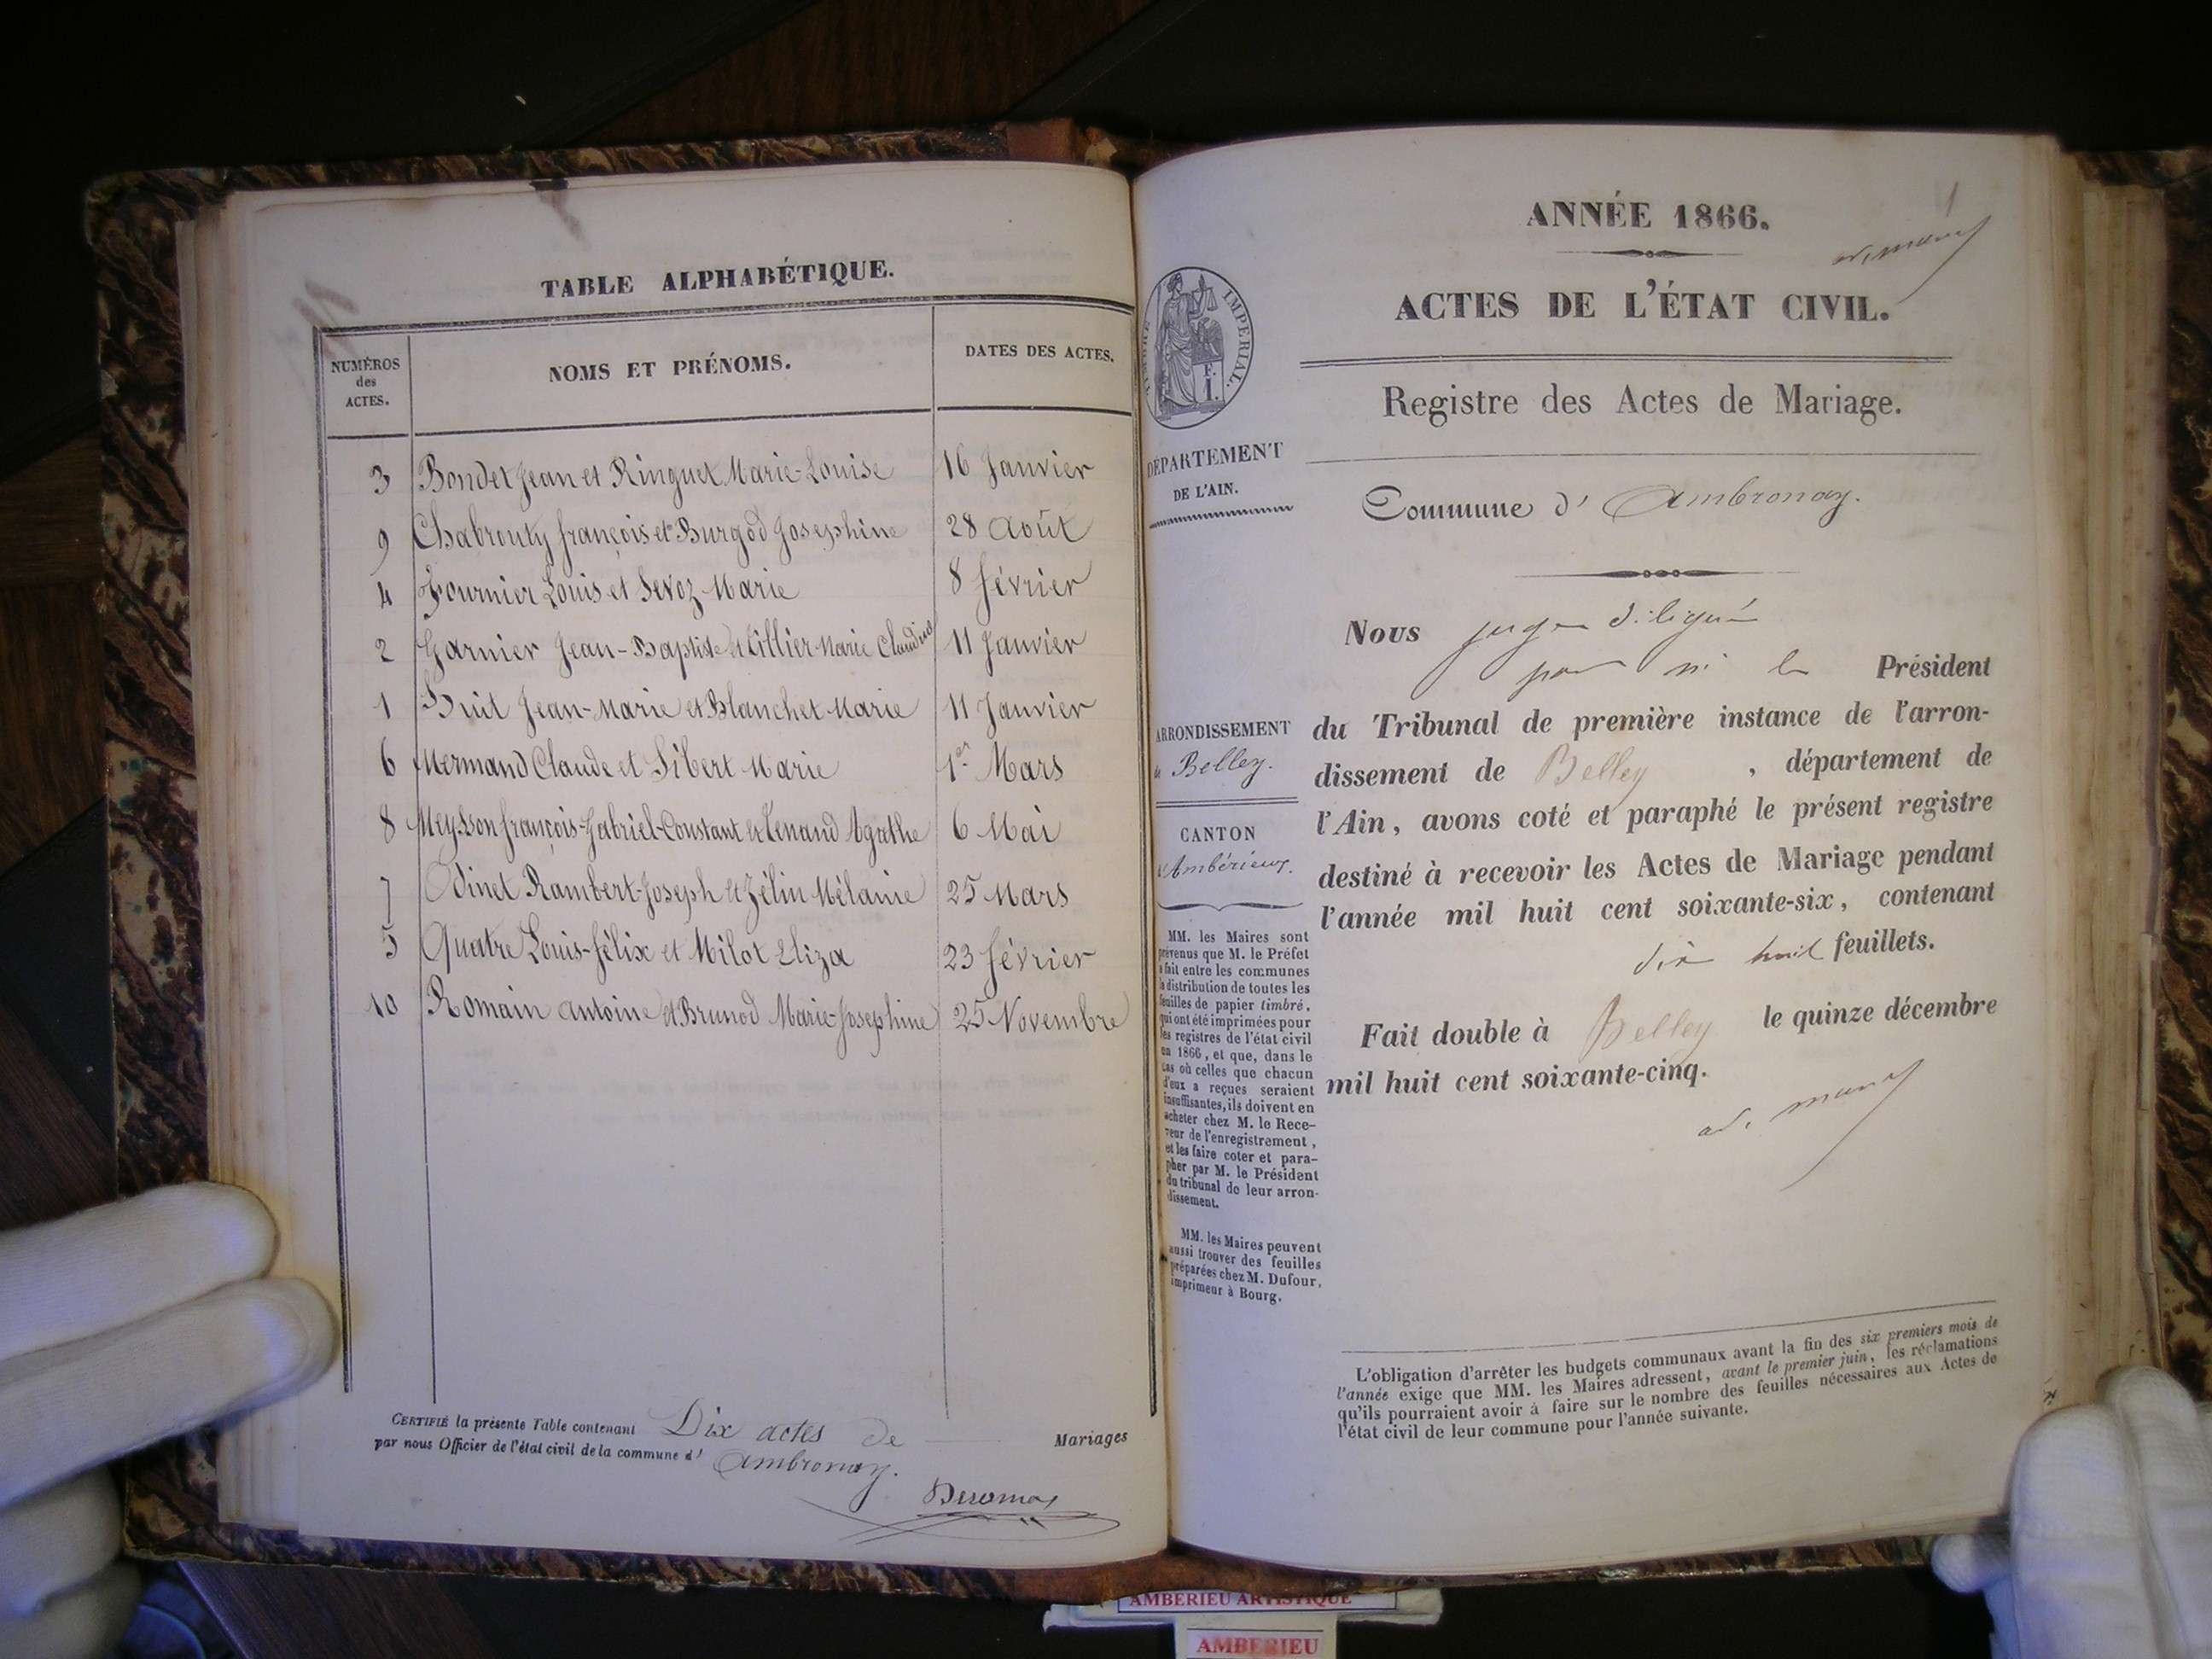 TABLE ALPHABÉTIQUE.
NUMÉROS des ACTES.
NOMS ET PRÉNOMS.
DATES DES ACTES.
3 Bondet Jean et Ringuet Marie-Louise 16 Janvier
9 Chabrouty françois et Burgod Josephine 28 Août
4 Fournier Louis et Sevoz Marie 8 février
2 Garnier Jean-Baptiste et Tillier Marie Claudine 11 Janvier
1 Huit Jean-Marie et Blanchet Marie 11 Janvier
6 Mermand Claude et Sibert Marie 1er Mars
8 Meysson françois-Gabriel-Constant et Lenand Agathe 6 Mai
7 Odinet Rambert-Joseph et Zélin Mélanie 25 Mars
5 Quatre Louis-félix et Milot Eliza 23 février
10 Romain Antoine et Brunod Marie-Josephine 25 Novembre
CERTIFIÉ la présente Table contenant Dix actes de Mariages
par nous Officier de l'état civil de la commune d' Ambronay.
ANNÉE 1866.
ACTES DE L'ÉTAT CIVIL.
Registre des Actes de Mariage.
IMPERIAL.
F. 1.
DÉPARTEMENT
DE L'AIN.
Commune d' Ambronay.
Nous juge délégué
par M. le Président
ARRONDISSEMENT
de Belley.
CANTON
d'Ambérieux.
du Tribunal de première instance de l'arron-
dissement de Belley, département de
l'Ain, avons coté et paraphé le présent registre
destiné à recevoir les Actes de Mariage pendant
l'année mil huit cent soixante-six, contenant
dix huit feuillets.
Fait double à Belley le quinze décembre
mil huit cent soixante-cinq.
MM. les Maires sont
prévenus que M. le Préfet
a fait entre les communes
la distribution de toutes les
feuilles de papier timbré,
qui ont été imprimées pour
les registres de l'état civil
en 1866, et que, dans le
cas où celles que chacun
d'eux a reçues seraient
insuffisantes, ils doivent en
acheter chez M. le Rece-
veur de l'enregistrement,
et les faire coter et para-
pher par M. le Président
du tribunal de leur arron-
dissement.
MM. les Maires peuvent
aussi trouver des feuilles
préparées chez M. Dufour,
imprimeur à Bourg.
L'obligation d'arrêter les budgets communaux avant la fin des six premiers mois de
l'année exige que MM. les Maires adressent, avant le premier juin, les réclamations
qu'ils pourraient avoir à faire sur le nombre des feuilles nécessaires aux Actes de
l'état civil de leur commune pour l'année suivante.
AMBERIEU ARTISTIQUE
AMBERIEU